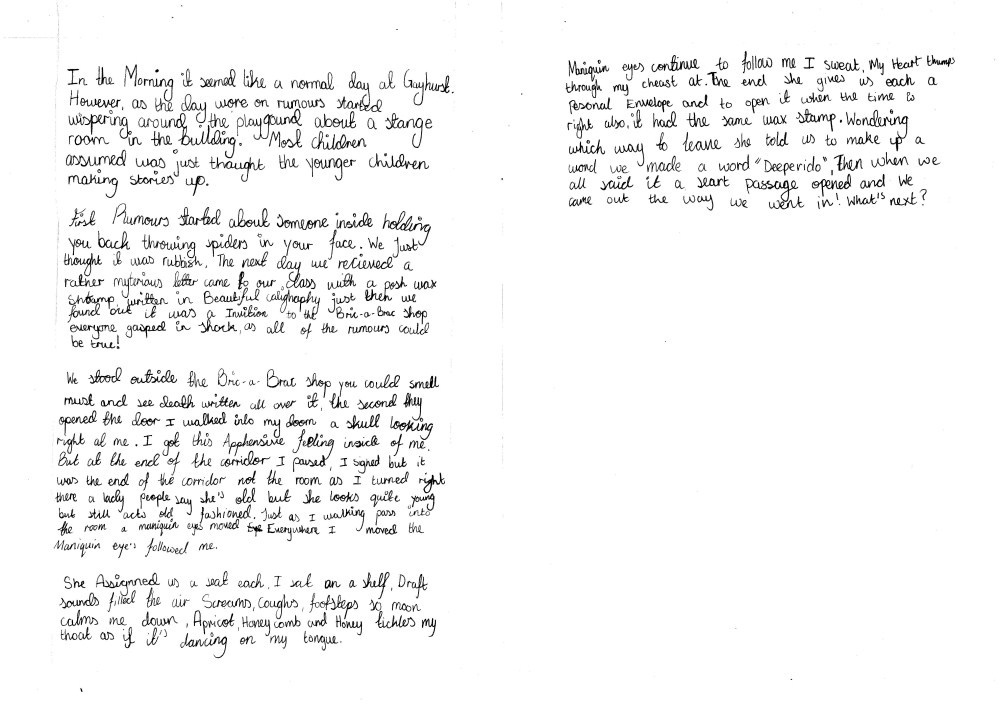 In the Morning it seemed like a normal day at Guyhurst.
However, as the day wore on rumours started
wispering around the playgound about a stange
room in the building. Most children
assumed was just thought the younger children
making stories up.
First Rumours started about someone inside holding
you back throwing spiders in your face. We Just
thought it was rubbish. The next day we recieved a
rather myterious letter came to our class with a posh wax
written in Beautiful calighaphy just then we
found out it was a Invition to the Bric-a-Brac shop
everyone gasped in shock, as all of the rumours could
be true!
We stood outside the Bric-a-Brac shop you could smell
must and see death written all over it, the second they
opened the door I walked into my doom a skull looking
right at me. I got this Apphensive felling inside of me.
But at the end of the corridor I paused, I sighed but it
was the end of the corridor not the room as I turned right
there a lady people say she's old but she looks quite young
but still acts old fashioned. Just as I walking pass into
the room a maniquin eyes moved Everywhere I moved the
Maniquin eye's followed me.
She Assignned us a seat each, I sat on a shelf, Draft
sounds filled the air Screams, Coughs, footsteps so moon
calms me down, Apricot, Honey comb and Honey tickles my
thoat as if it's dancing on my tongue.
Maniquin eyes continue to follow me I sweat, My Heart thumps
through my cheast at. The end she gives us each a
Pesonal Envelope and to open it when the time is
right also, it had the same wax stamp. Wondering
which way to leave she told us to make up a
word we made a word "Deeperido", Then when we
all said it a seart passage opened and We
came out the way we went in! What's next?